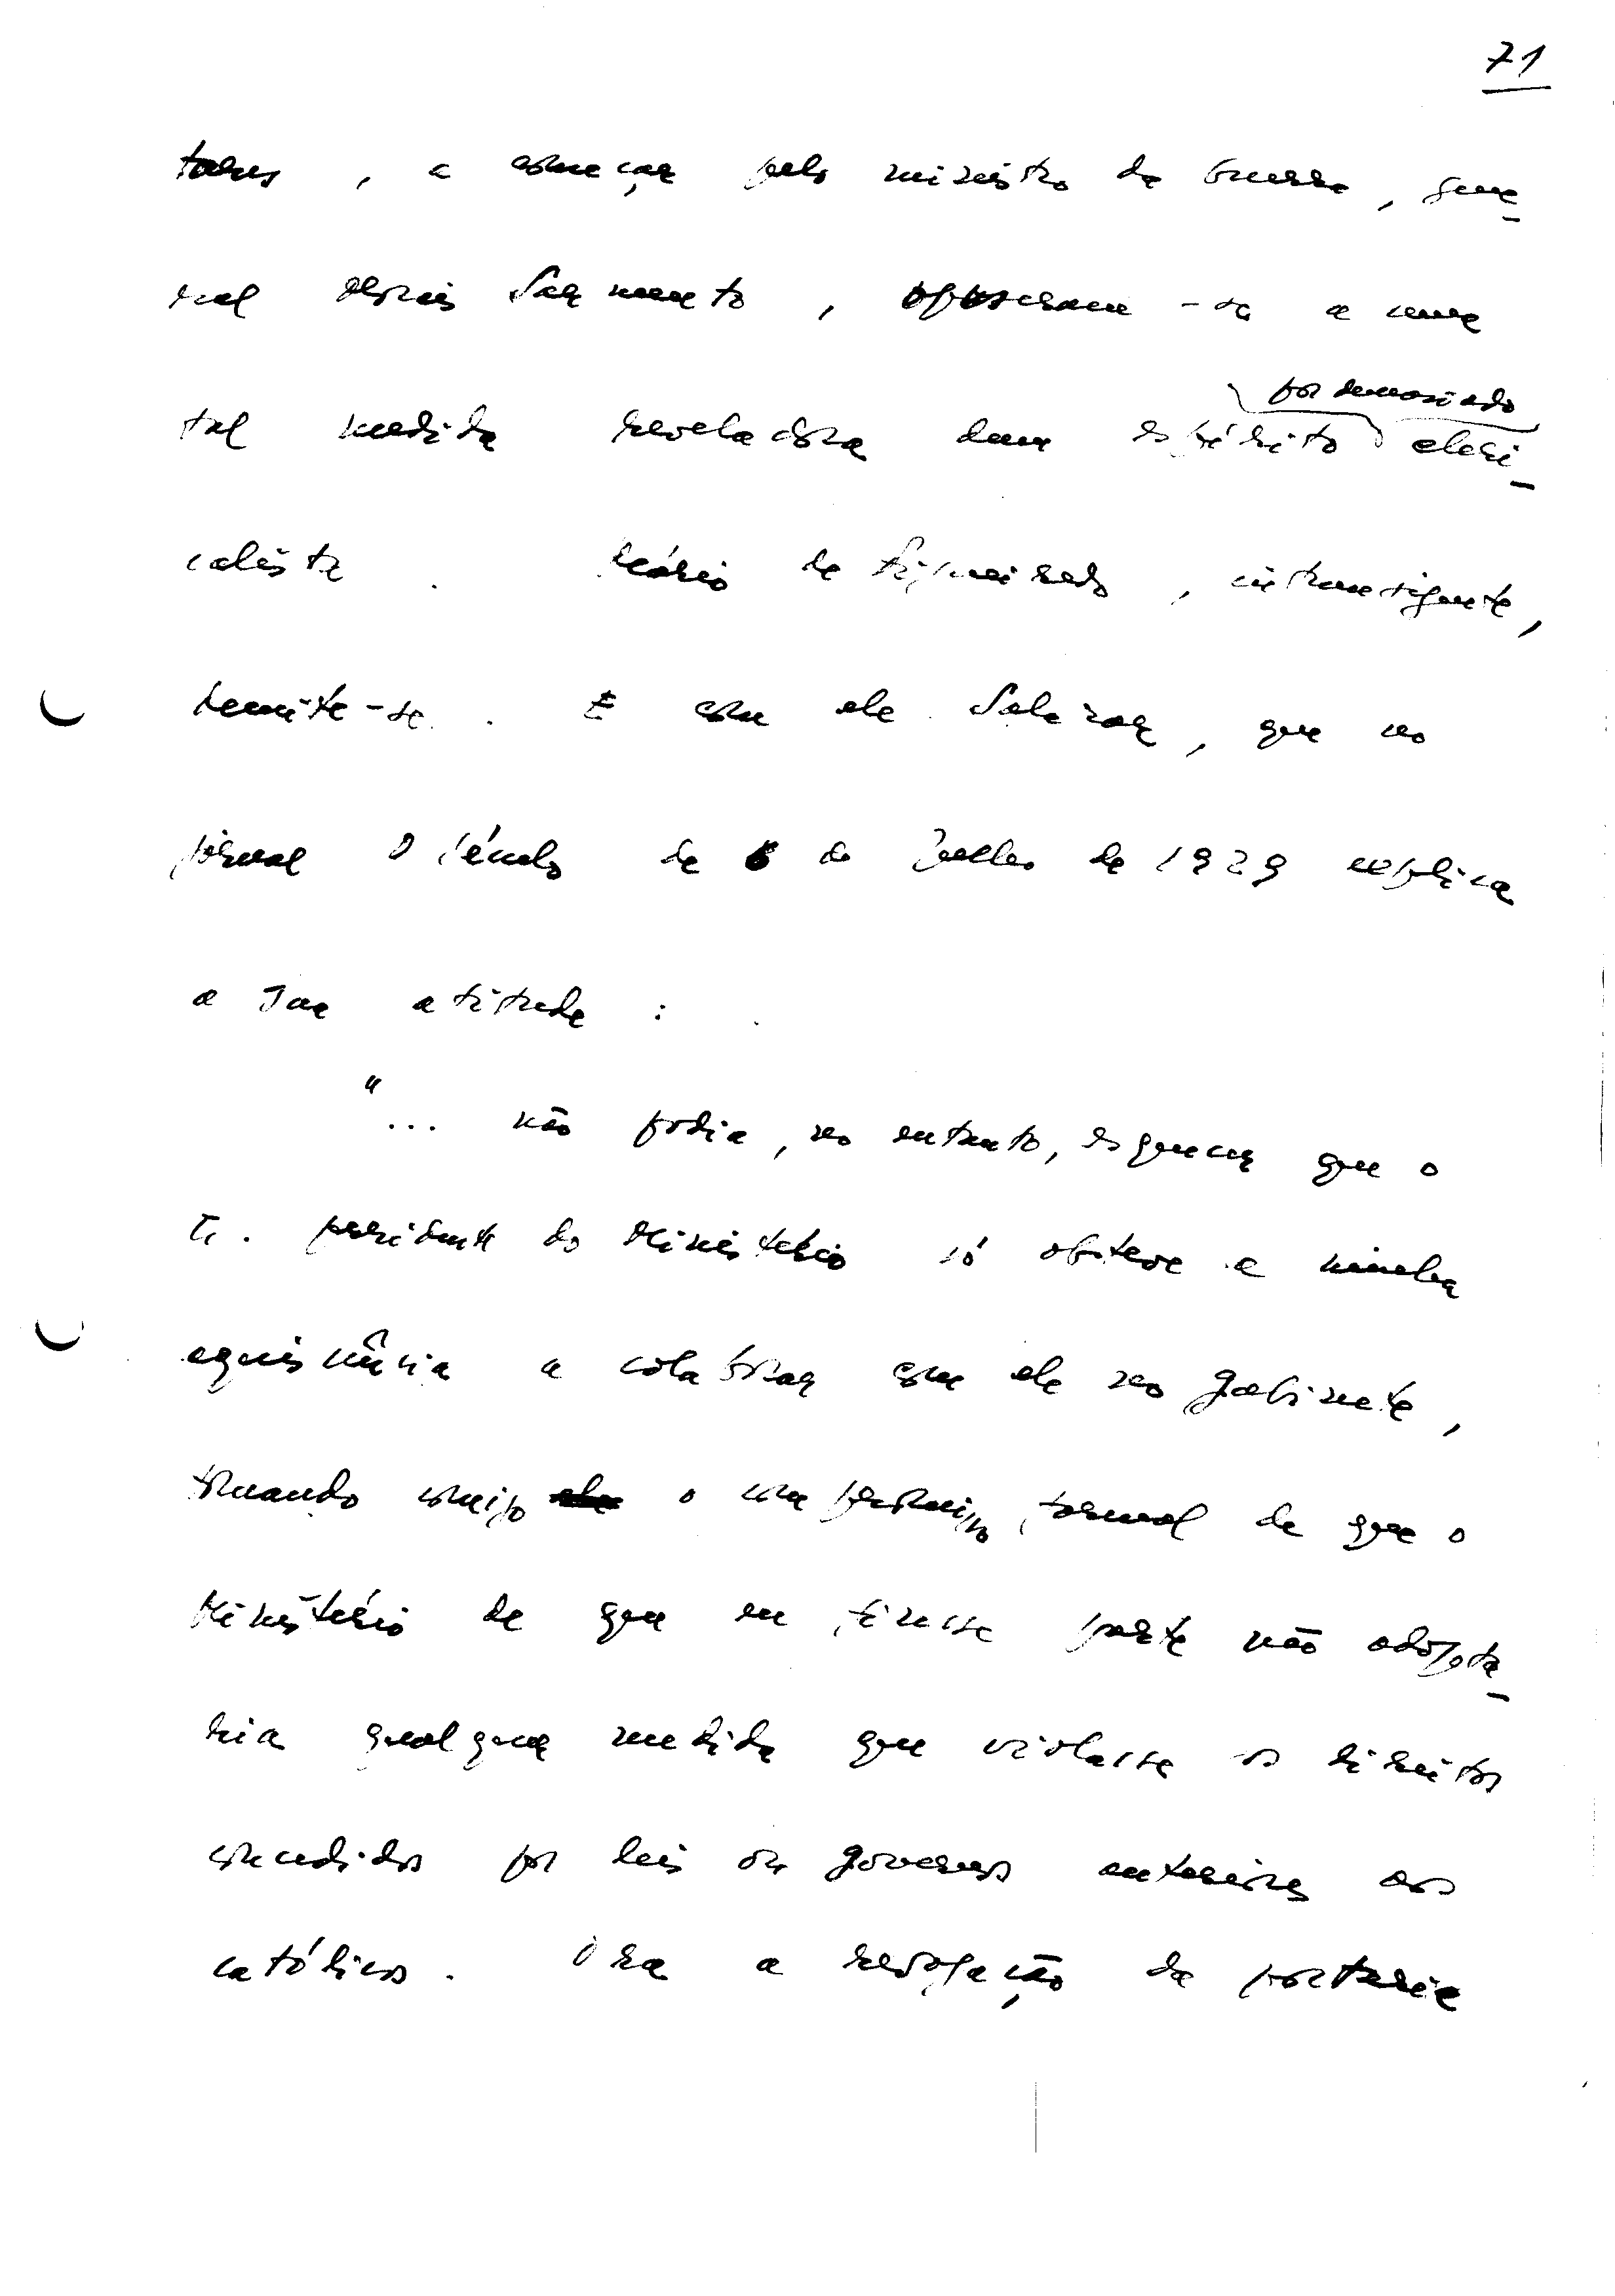 71
tares, a começar pelo ministro da Guerra, gene-
ral Morais Sarmento, opuseram-se a uma
por demasiado
tal medida reveladora dum espírito cleri-
calista. Mário de Figueiredo, intransigente,
demite-se. E com ele Salazar, que no
jornal O Século de 6 de Julho de 1929 explica
a sua atitude:
"... não podia, no entanto, esquecer que o
sr. presidente do Ministério só obteve a minha
aquiescência a colaborar com ele no gabinete,
tomando comigo o compromisso formal de que o
Ministério de que eu fizesse parte não adopta-
ria qualquer medida que violasse os direitos
concedidos por leis ou governos anteriores aos
católicos. Ora a revogação da portaria